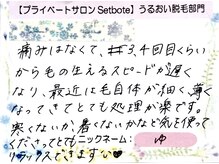 【プライベートサロン Setbote】うるおい脱毛部門
痛みはなくて、3,4回目くらい
から毛の生えるスピードが遅く
なり、最近は毛自体が細く、薄く
なってきてとても処理が楽です。
寒くないか、暑くないかなど気を使って
くださってとても
リラックスできます♡
ニックネーム： ゆ